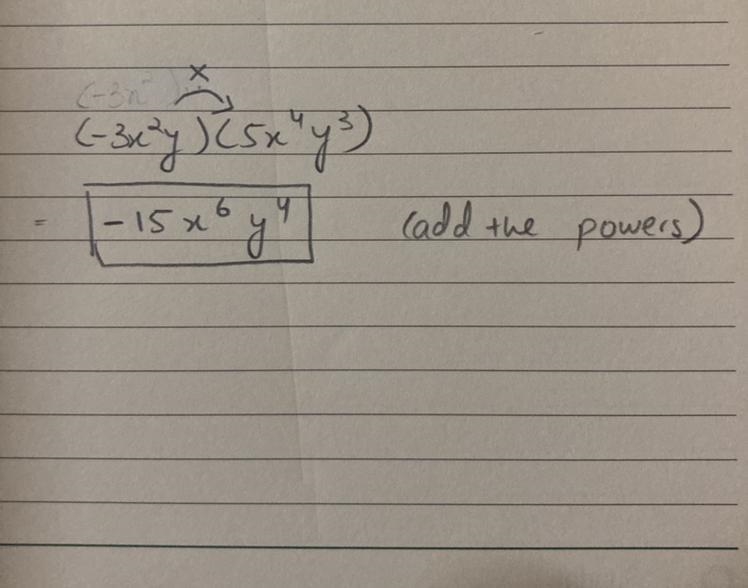 (-3x²
×
(-3x²y)(5x⁴y³)
= -15x⁶y⁴ (add the powers)